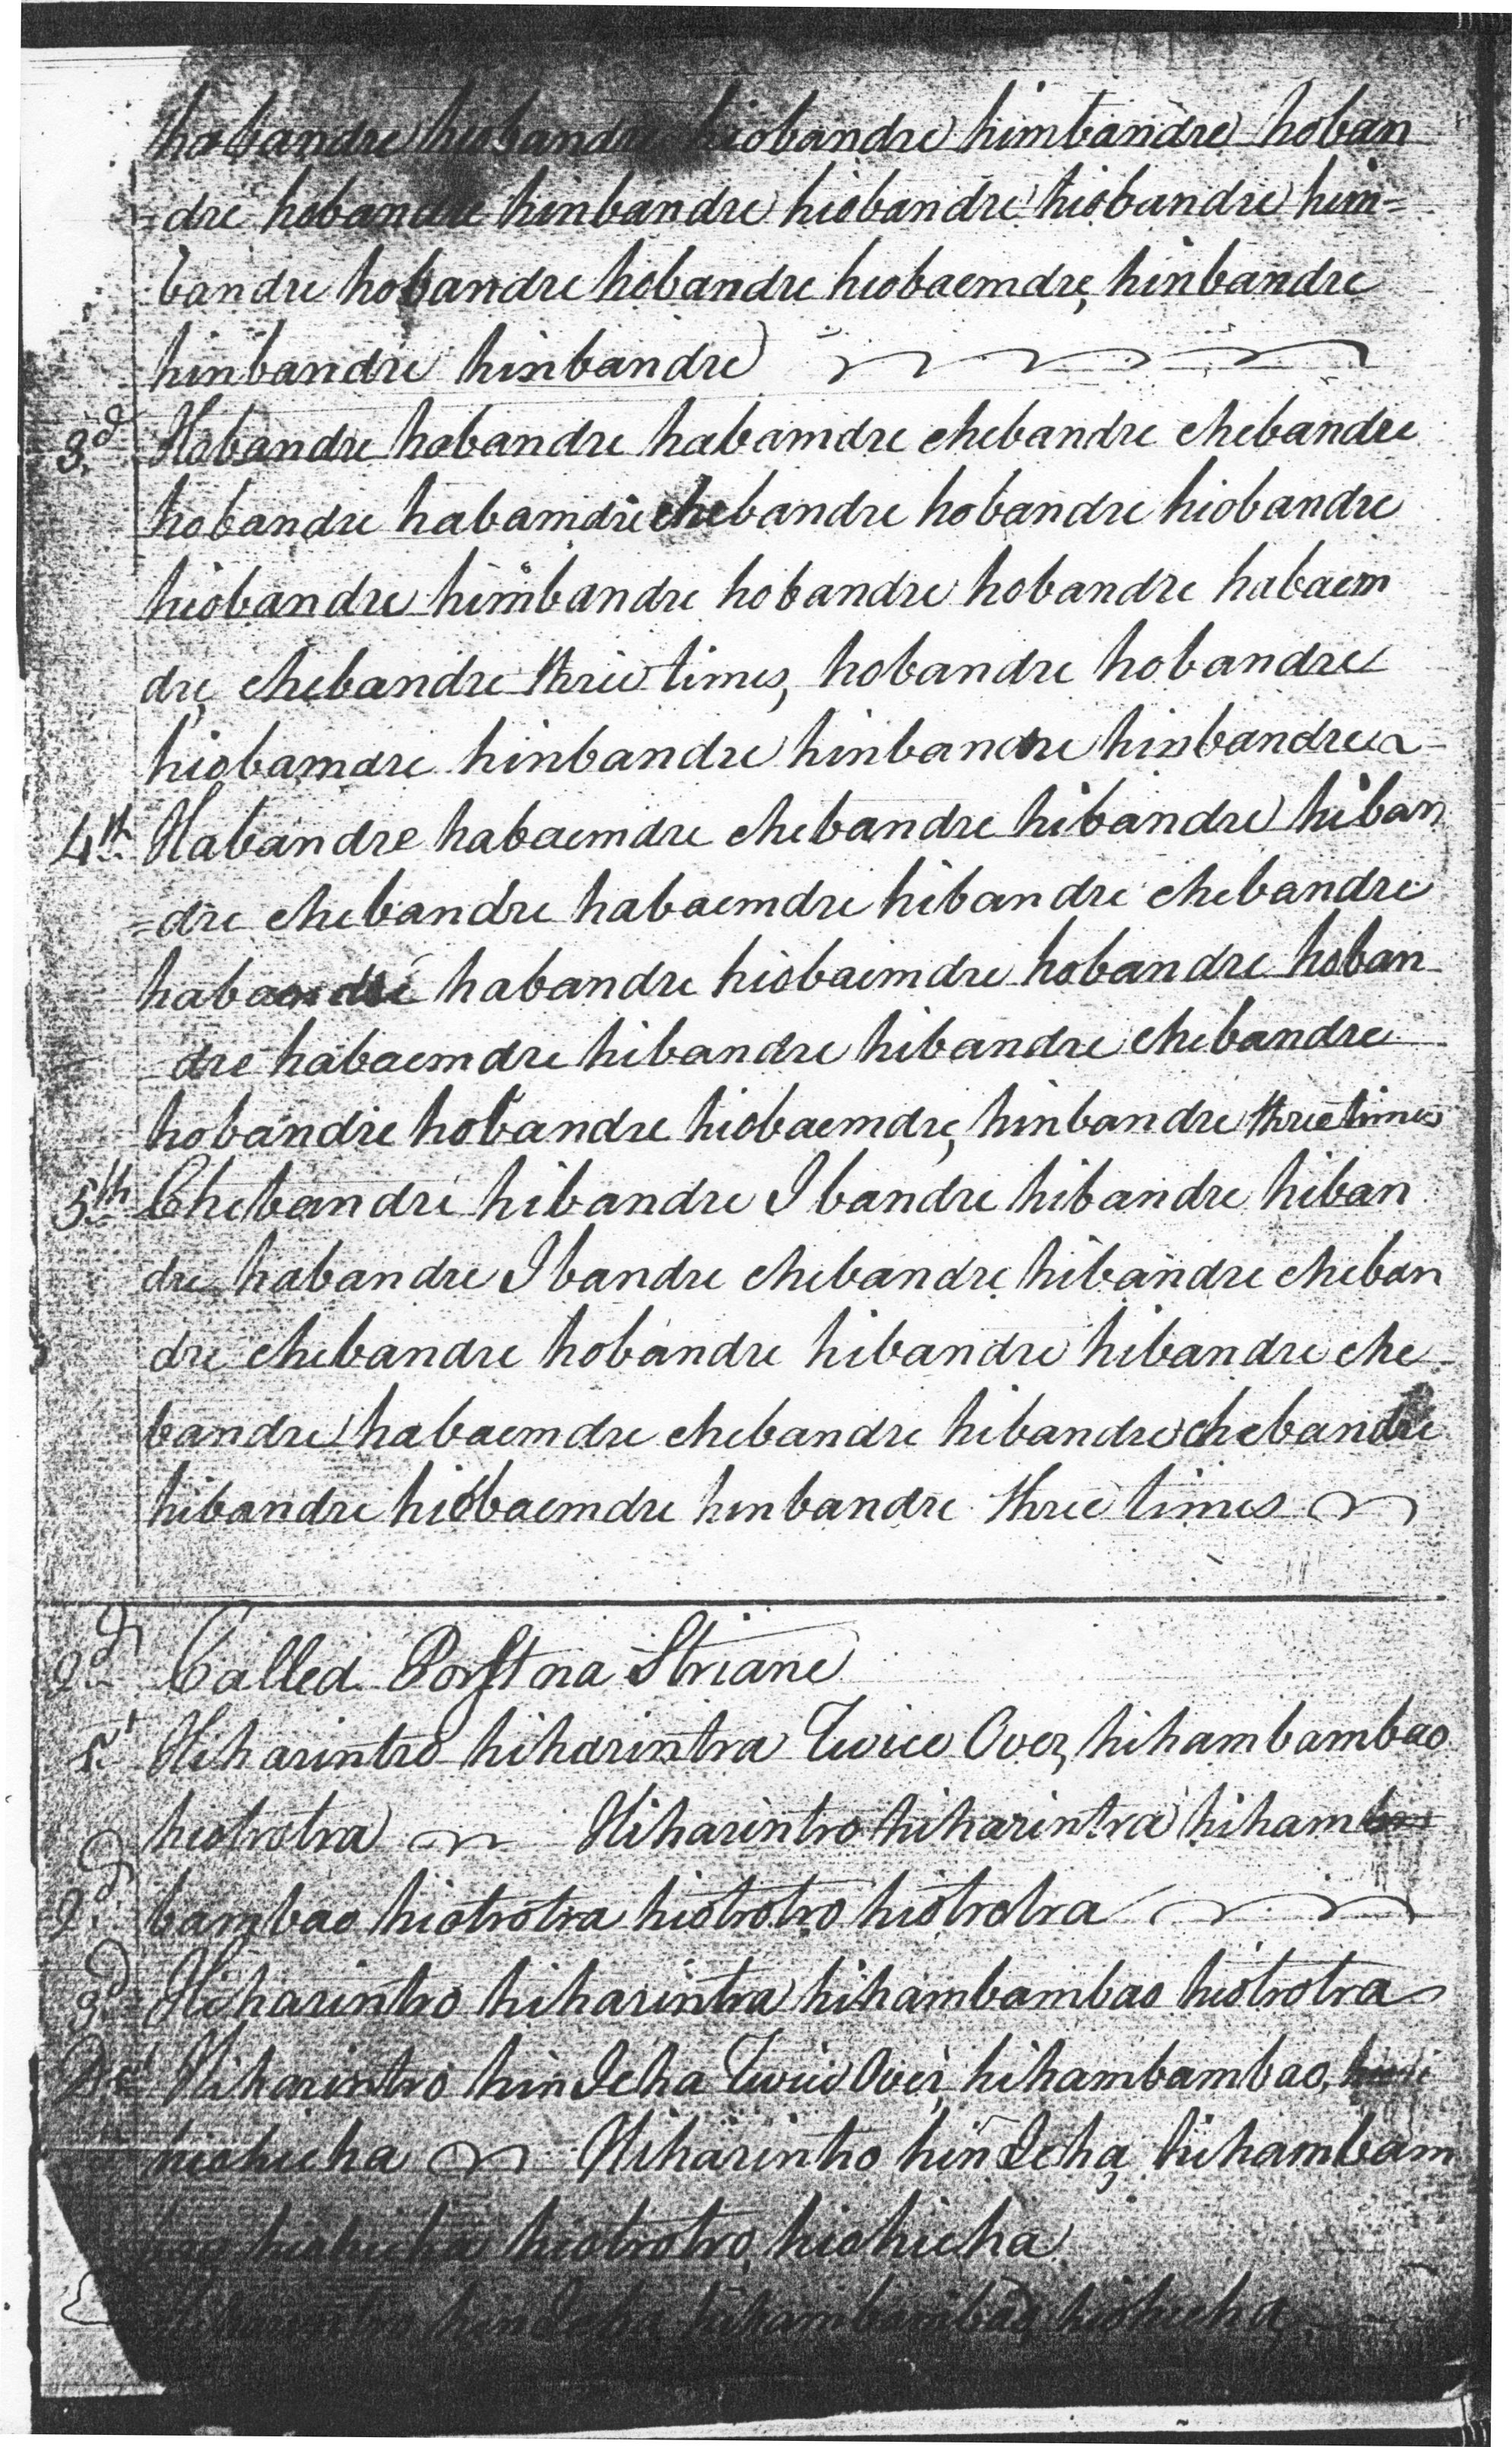 habandre hiobandre hiobandre himbandre hoban
=dre hobandre hinbandre hiobandre hiobandre hin=
bandre hobandre hobandre hiobaemdre, hinbandre
hinbandre hinbandre
3.d Hobandre habandre habamdre chebandre chebandre
hobandre habamdre chebandre hobandre hiobandre
hiobandre himbandre hobandre hobandre habaem
dre, chebandre three times, hobandre hobandre
hiobamdre hinbandre hinbandre hinbandre
4th Habandre habaemdre chebandre hibandre hiban
=dre chebandre habaemdre hibandre chebandre
habandre hiobaemdre hobandre hoban
dre habaemdre hibandre hibandre chebandre
hobandre hobandre hiobaemdre, hinbandre three times
5th Chebandre hibandre Ibandre hibandre hiban
dre habandre Ibandre chebandre, hibandre cheban
dre chebandre hobandre hibandre hibandre che
bandre habaemdre chebandre hibandre chebandre
hibandre hiobaemdre hinbandre three times
2d Called Porst na Striane
1st Hiharintro hiharintra Twice Over, hihambambao
hiotrotra Hiharintro hiharintra hiham
2d bambao hiotrotra hiotrotro hiotrotra
3d Hiharintro hiharintra hihambambao hiotrotra
Hiharintro hin Icha Twice Over hihambambao,
hiohicha Hiharintro hin Icha, hihambam
bao hiohicha hiotrotro, hiohicha
Hiharintro hin Icha hihambambao, hiohicha,